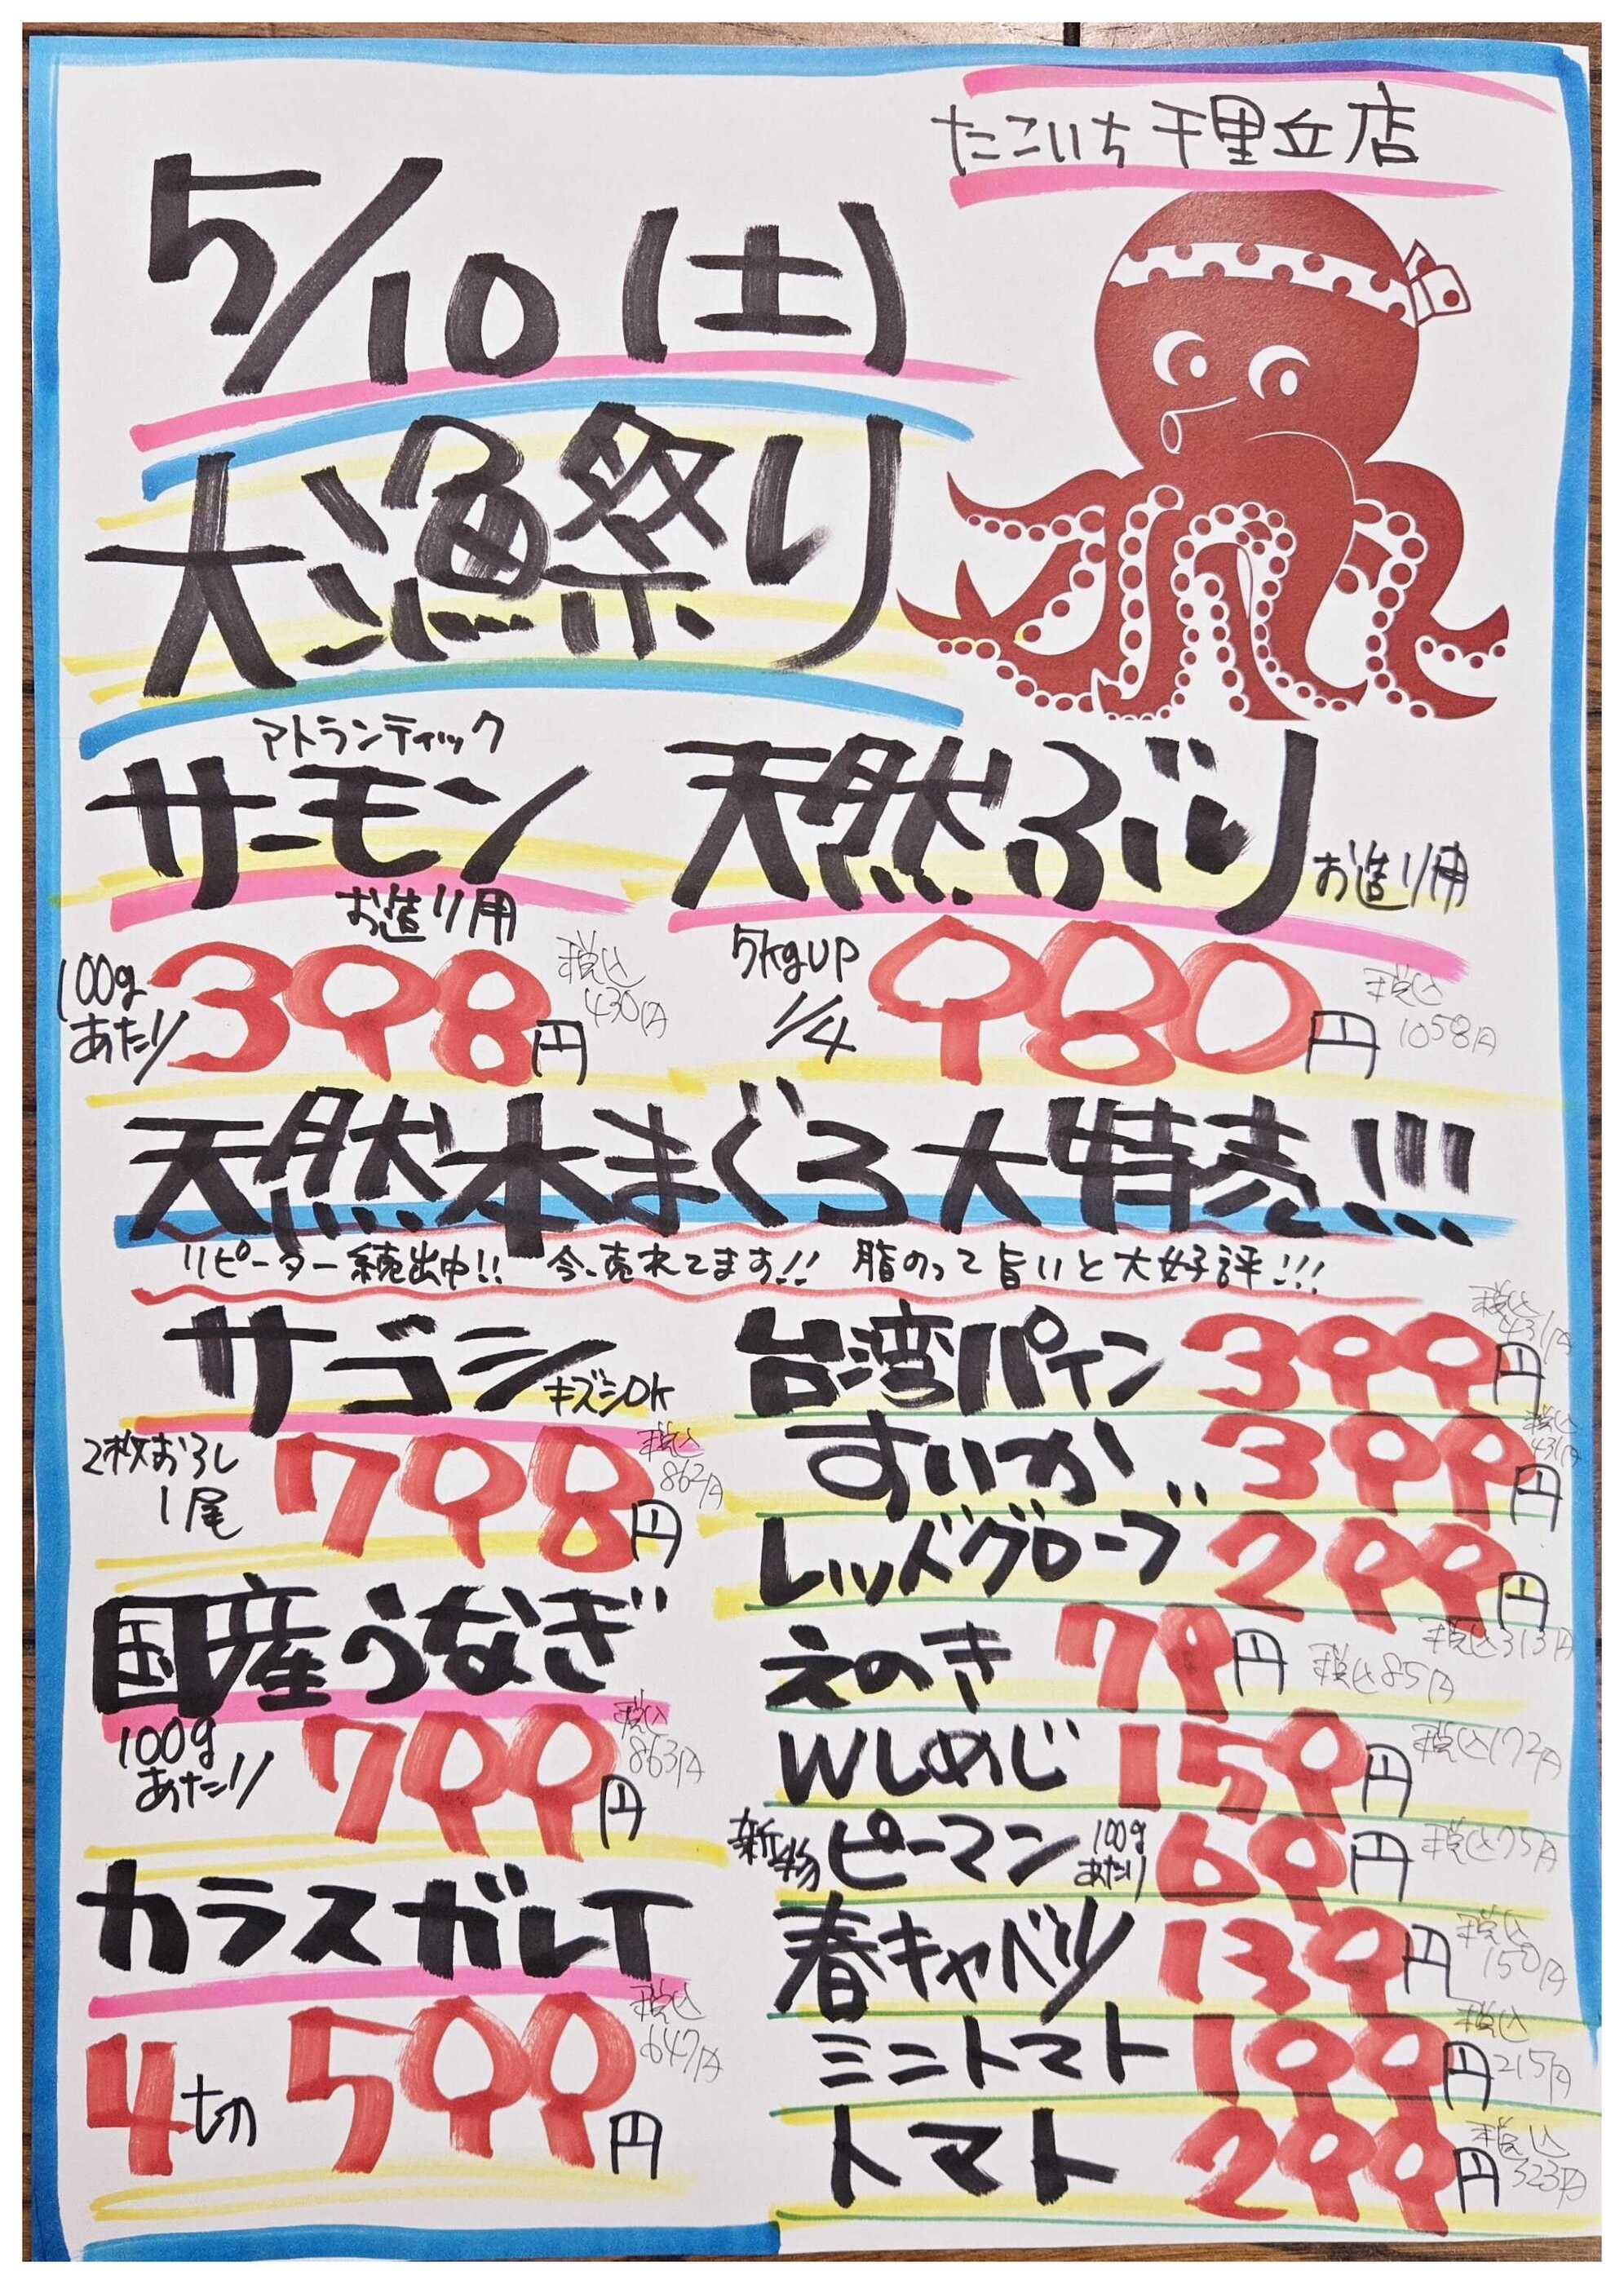 たこいち 千里丘店
5/10 (土)
大漁祭り
アトランティック
サーモン
お造り用
100g
あたり
398円
税込
430円
天然ぶり
お造り用
5kgUP
1/4
980円
税込
1058円
天然本まぐろ大特売!!!
リピーター続出中!! 今、売れてます!! 脂のって旨いと大好評!!!
サゴシ
キズシOK
2枚おろし
1尾
798円
税込
862円
国産うなぎ
100g
あたり
799円
税込
863円
カラスガレイ
4切 599円
税込
647円
台湾パイン 399円
税込
431円
すいか 399円
税込
431円
レッドグローブ 299円
税込313円
えのき 79円 税込85円
Wしめじ 159円 税込172円
新物 ピーマン 100gあたり 69円 税込75円
春キャベツ 139円
税込
150円
ミニトマト 199円
税込
215円
トマト 299円
税込
323円